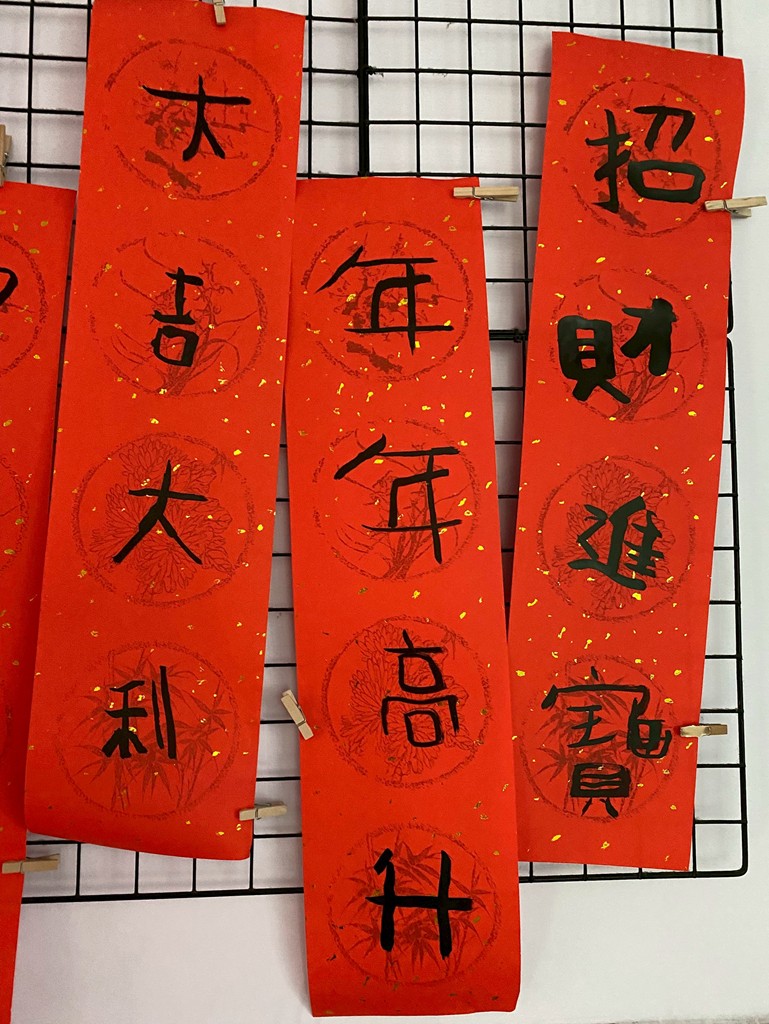 招財進寶
年年高升
大吉大利